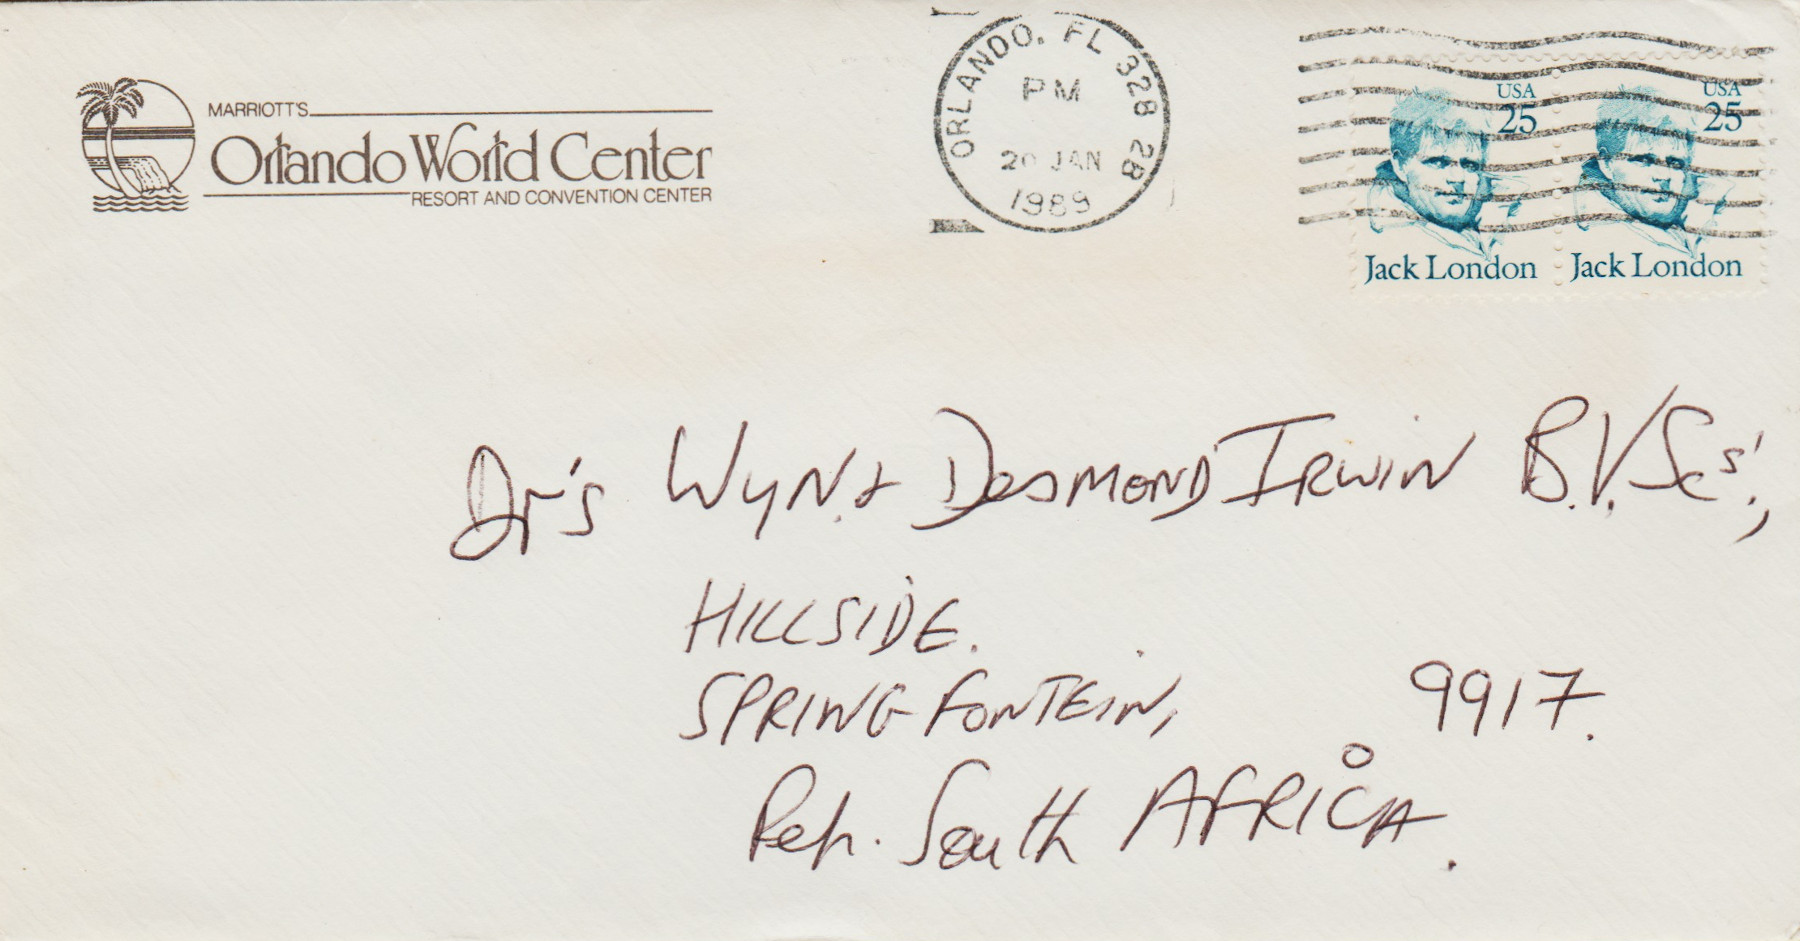 MARRIOTT'S
Orlando World Center
RESORT AND CONVENTION CENTER
ORLANDO, FL 328 2B
PM
20 JAN
1989
USA
25
Jack London
USA
25
Jack London
Dr's WYN. & DESMOND IRWIN B.V.Scs'.,
HILLSIDE.
SPRINGFONTEIN, 9917.
Rep. South AFRICA.